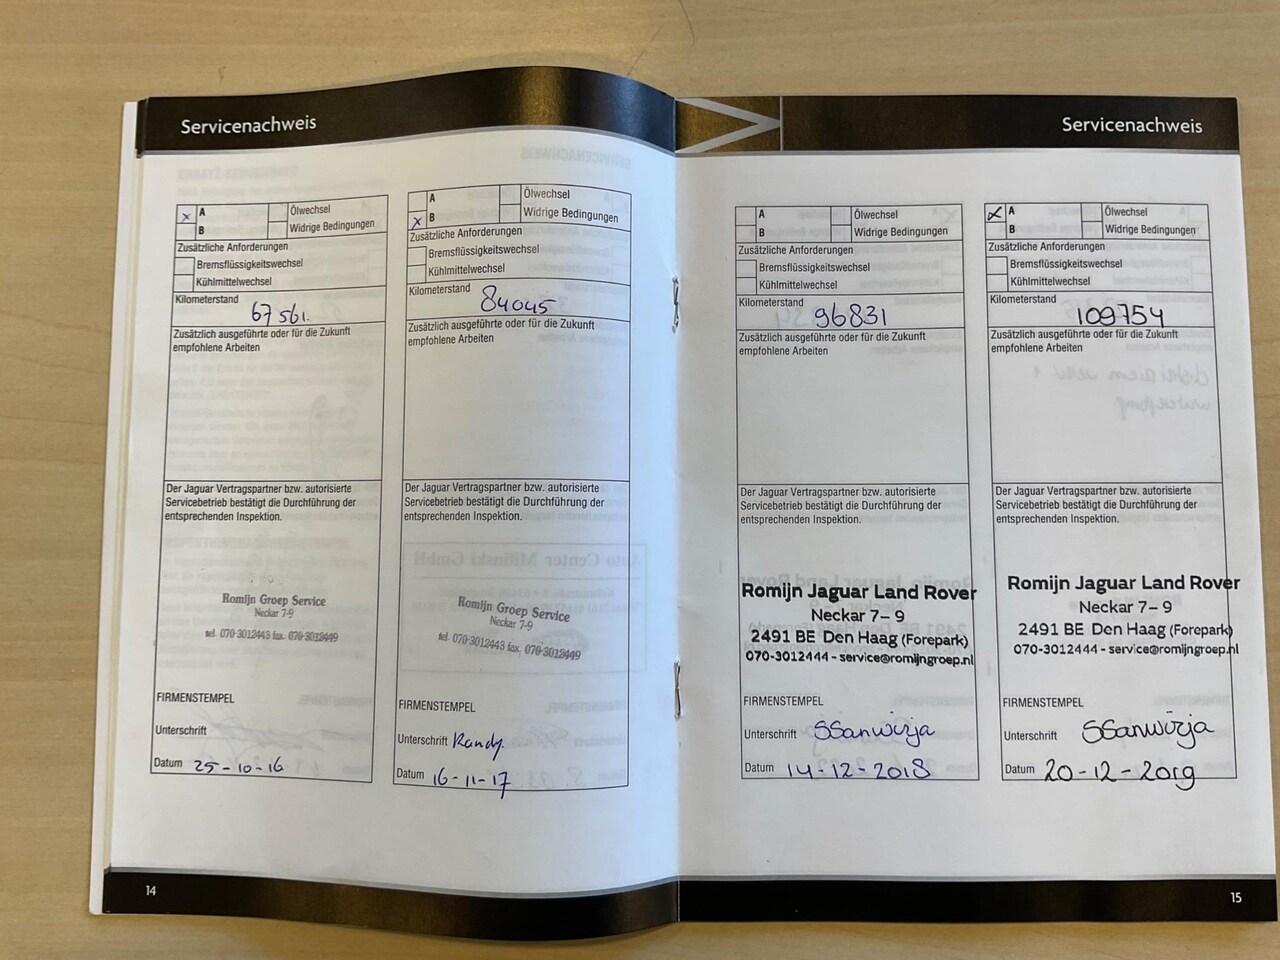 Servicenachweis
x A Ölwechsel
B Widrige Bedingungen
Zusätzliche Anforderungen
Bremsflüssigkeitswechsel
Kühlmittelwechsel
Kilometerstand
67561.
Zusätzlich ausgeführte oder für die Zukunft
empfohlene Arbeiten
Der Jaguar Vertragspartner bzw. autorisierte
Servicebetrieb bestätigt die Durchführung der
entsprechenden Inspektion.
Romijn Groep Service
Neckar 7-9
tel. 070-3012443 fax. 070-3012449
FIRMENSTEMPEL
Unterschrift
Datum 25-10-16
A Ölwechsel
x B Widrige Bedingungen
Zusätzliche Anforderungen
Bremsflüssigkeitswechsel
Kühlmittelwechsel
Kilometerstand
84045
Zusätzlich ausgeführte oder für die Zukunft
empfohlene Arbeiten
Der Jaguar Vertragspartner bzw. autorisierte
Servicebetrieb bestätigt die Durchführung der
entsprechenden Inspektion.
Romijn Groep Service
Neckar 7-9
tel. 070-3012443 fax. 070-3012449
FIRMENSTEMPEL
Unterschrift Randy.
Datum 16-11-17
14
Servicenachweis
A Ölwechsel
B Widrige Bedingungen
Zusätzliche Anforderungen
Bremsflüssigkeitswechsel
Kühlmittelwechsel
Kilometerstand
96831
Zusätzlich ausgeführte oder für die Zukunft
empfohlene Arbeiten
Der Jaguar Vertragspartner bzw. autorisierte
Servicebetrieb bestätigt die Durchführung der
entsprechenden Inspektion.
Romijn Jaguar Land Rover
Neckar 7-9
2491 BE Den Haag (Forepark)
070-3012444 - service@romijngroep.nl
FIRMENSTEMPEL
Unterschrift SSanwirja
Datum 14-12-2018
x A Ölwechsel
B Widrige Bedingungen
Zusätzliche Anforderungen
Bremsflüssigkeitswechsel
Kühlmittelwechsel
Kilometerstand
109754
Zusätzlich ausgeführte oder für die Zukunft
empfohlene Arbeiten
Der Jaguar Vertragspartner bzw. autorisierte
Servicebetrieb bestätigt die Durchführung der
entsprechenden Inspektion.
Romijn Jaguar Land Rover
Neckar 7-9
2491 BE Den Haag (Forepark)
070-3012444 - service@romijngroep.nl
FIRMENSTEMPEL
Unterschrift SSanwirja
Datum 20-12-2019
15